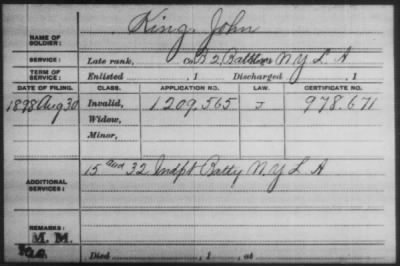 NAME OF SOLDIER: King, John
SERVICE: Late rank, Co. B 2, Battln N Y L A
TERM OF SERVICE: Enlisted , 1 Discharged , 1
DATE OF FILING. CLASS. APPLICATION NO. LAW. CERTIFICATE NO.
1898 Aug 30 Invalid, 1.209.565 J 978.671
Widow,
Minor,
ADDITIONAL SERVICES: 15 and 32 Indpt Batty N. Y L A
REMARKS:
M. M.
Died , 1 , at